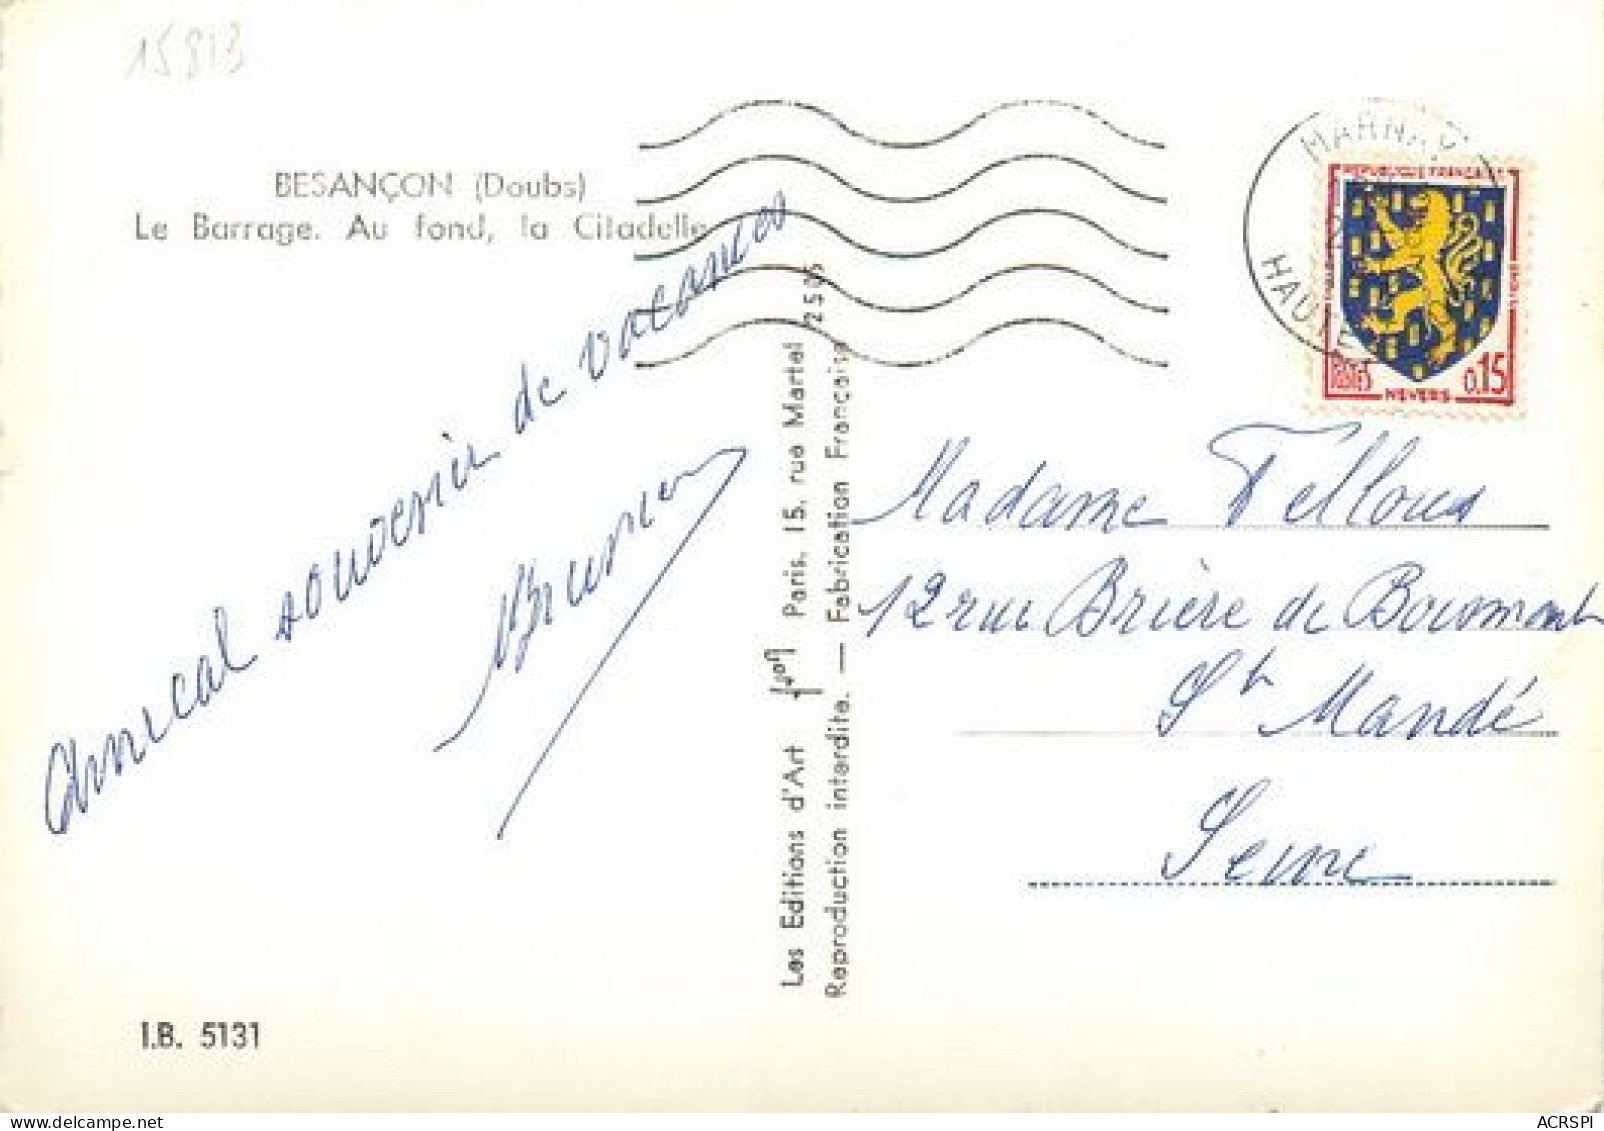 15813
BESANÇON (Doubs)
Le Barrage. Au fond, la Citadelle
Amical souvenir de vacances
I.B. 5131
Les Editions d'Art Yvon Paris. 15, rue Martel
Reproduction interdite. — Fabrication Française
HAUTE
REPUBLIQUE FRANÇAISE
POSTES 0,15
NEVERS
Madame Felloux
12 rue Brière de Boismont
St Mandé
Seine
ACRSPI